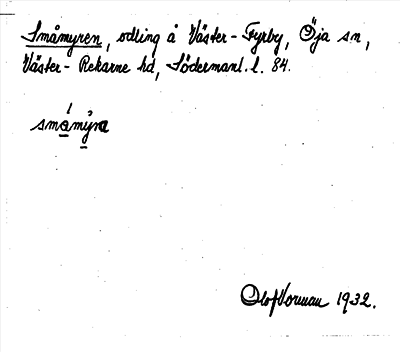 Småmyren, odling å Väster-Fyrby, Öja sn,
Väster-Rekarne hd, Södermanl. l. 84.
småmỳra
Olof Vorman 1932.